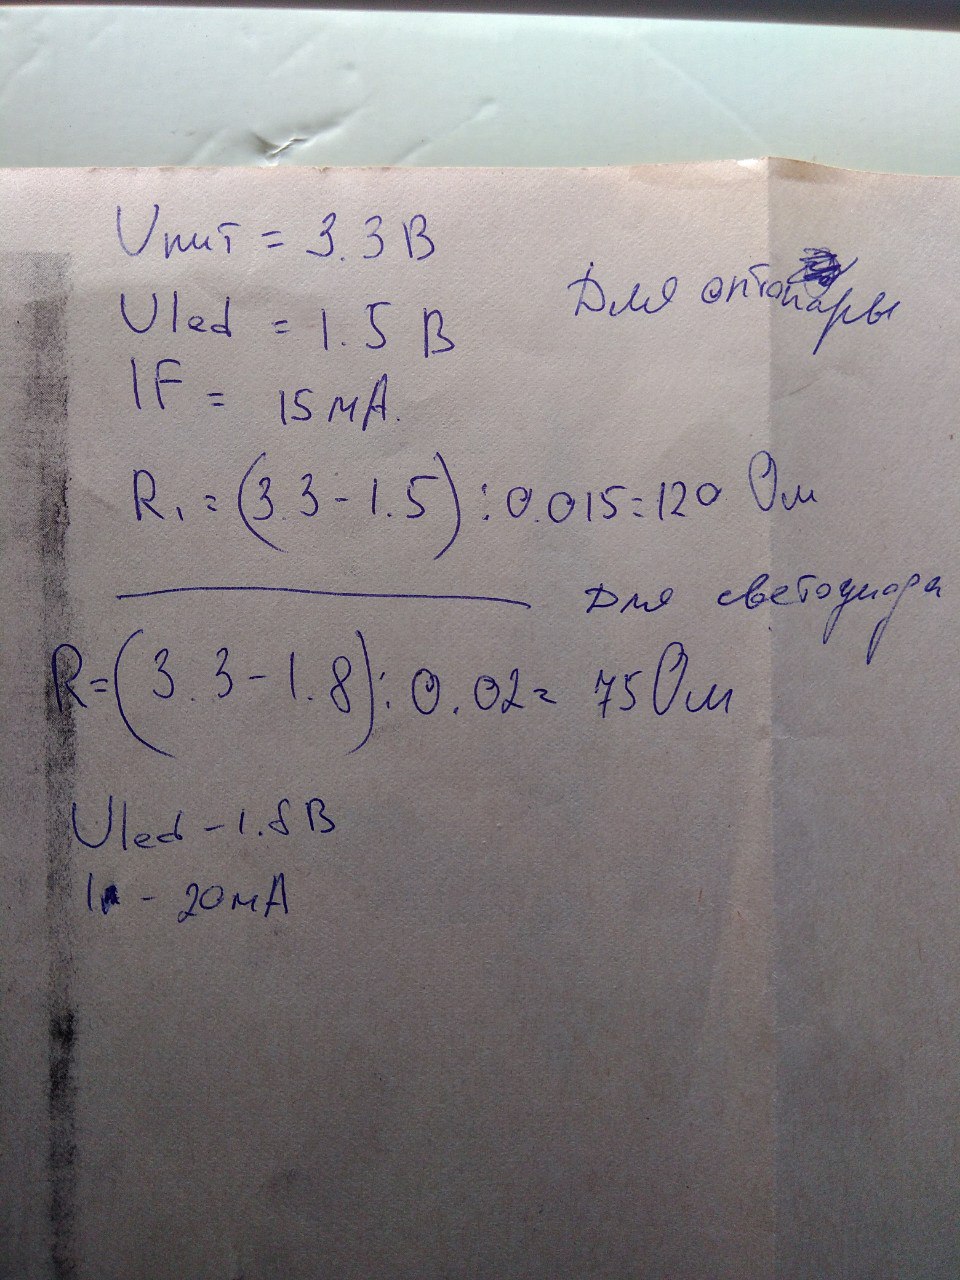 Uпит = 3.3 В
Для оптопары
Uled = 1.5 В
IF = 15 мА.
R1 = (3.3 - 1.5) : 0.015 = 120 Ом
Для светодиода
R = (3.3 - 1.8) : 0.02 = 75 Ом
Uled - 1.8 В
I - 20 мА